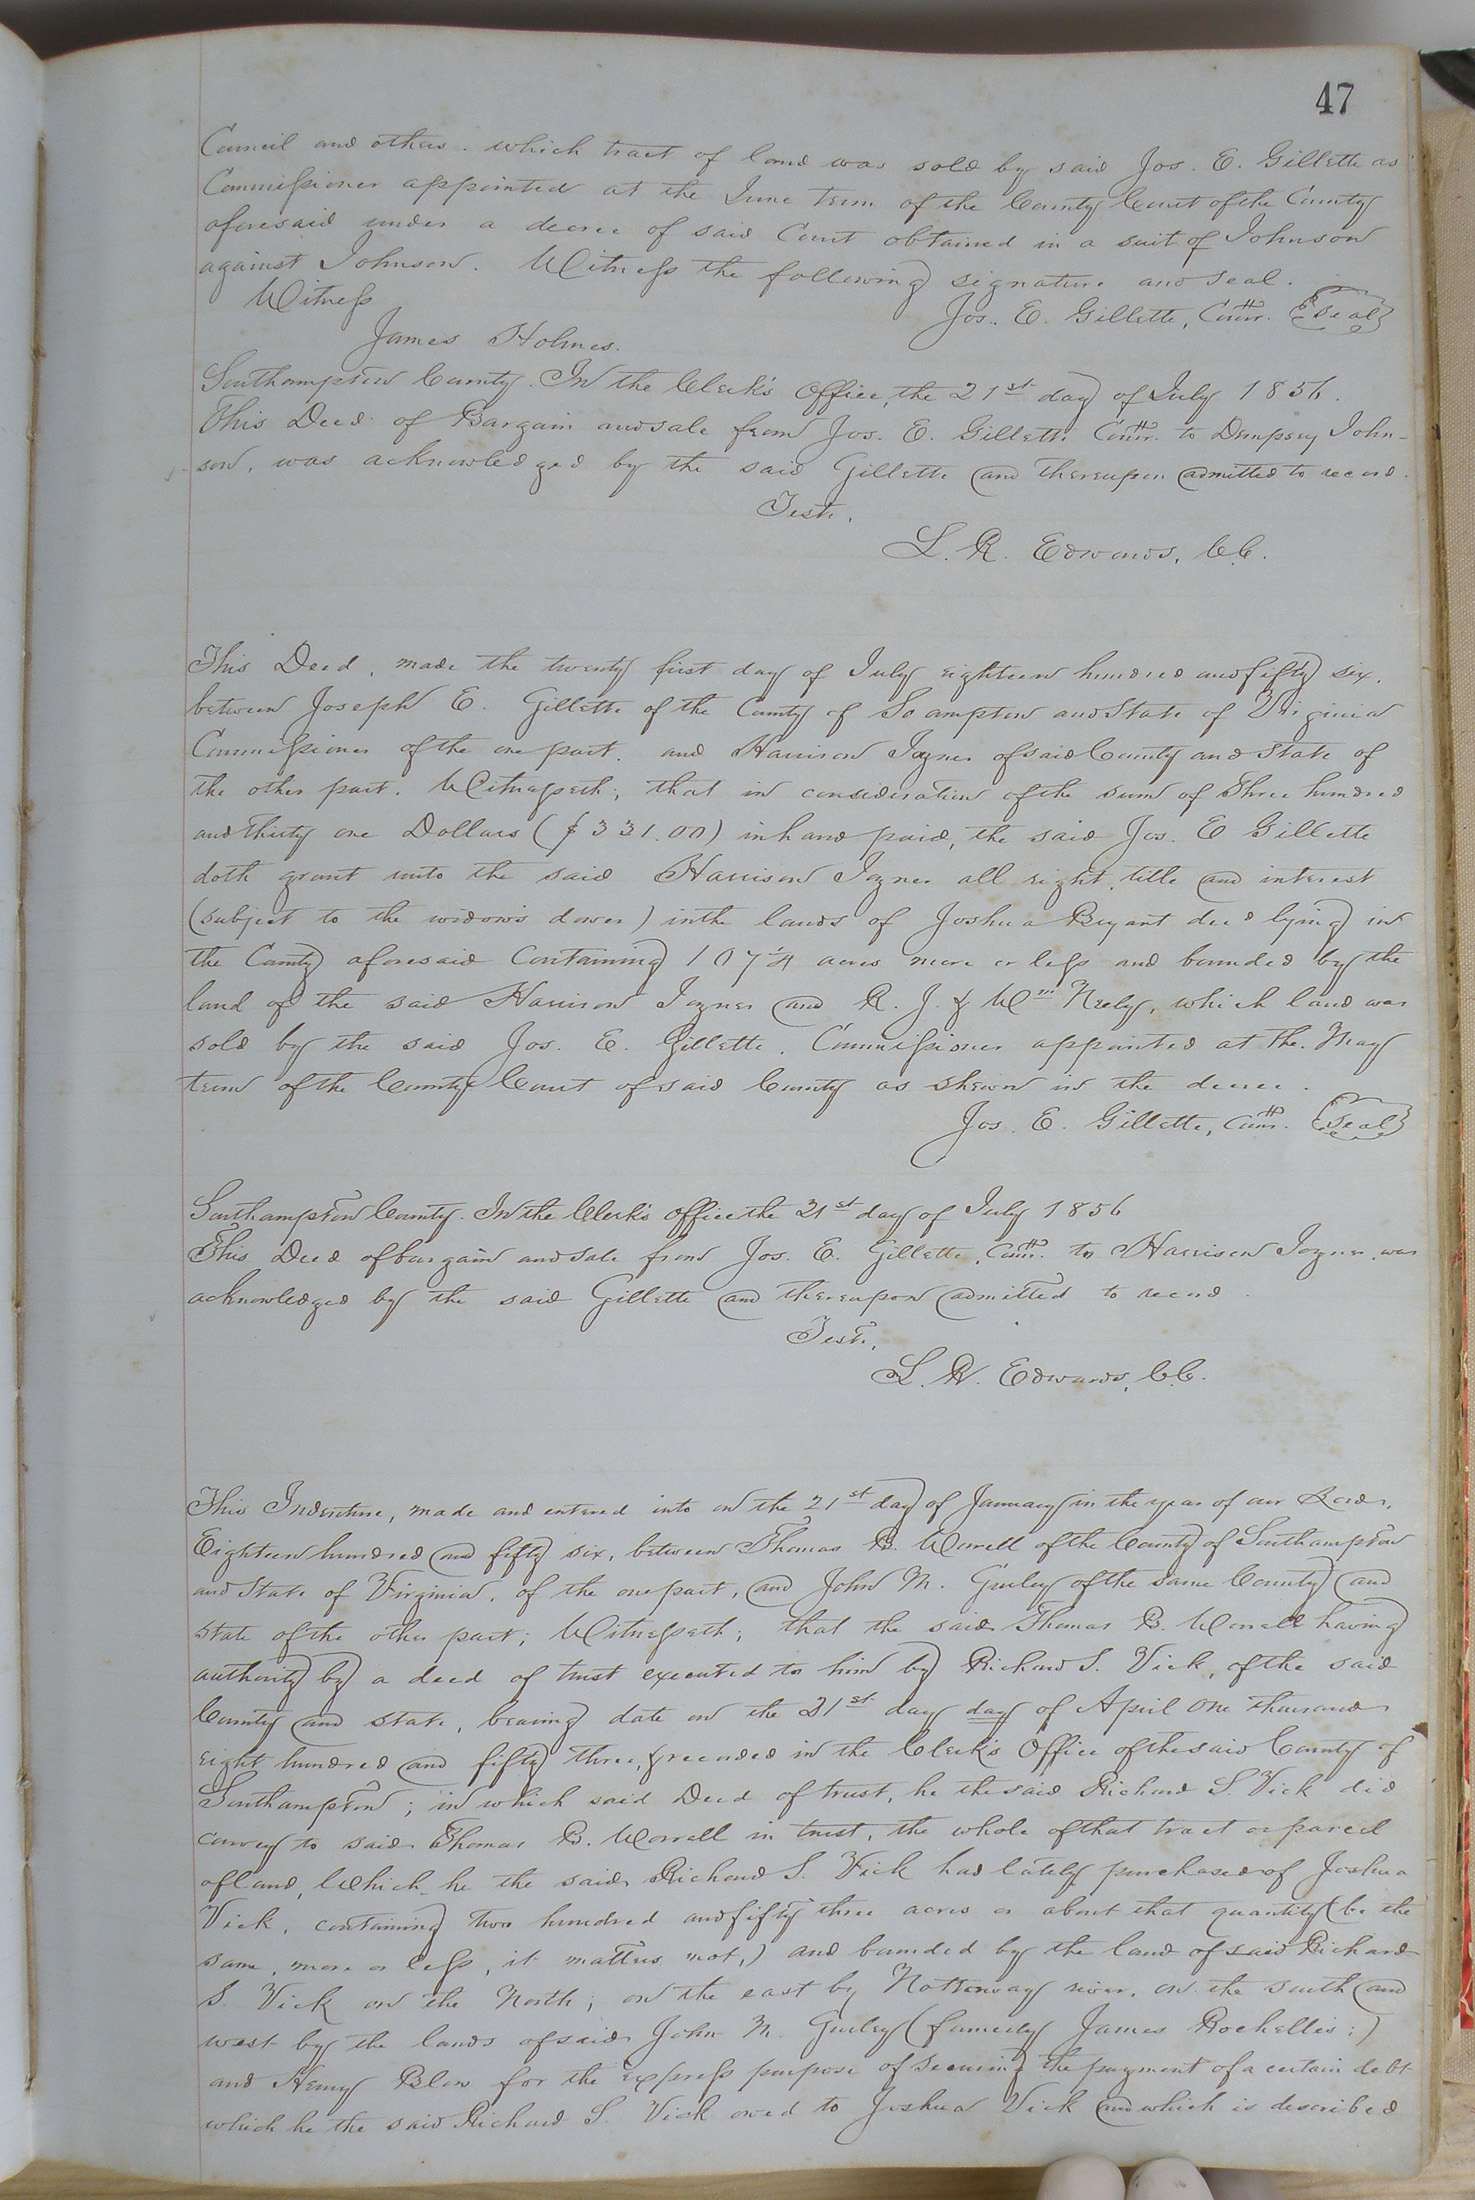 47
Council and others. which tract of land was sold by said Jos. E. Gillette as
Commissioner appointed at the June term of the County Court of the County
aforesaid under a decree of said Court obtained in a suit of Johnson
against Johnson. Witness the following signature and seal.
Witness Jos. E. Gillette, Comr. Seal
James Holmes.
Southampton County. In the Clerk's Office, the 21st day of July 1856.
This Deed of Bargain and sale from Jos. E. Gillette Comr. to Dempsey John-
son, was acknowledged by the said Gillette and thereupon admitted to record.
Teste,
L. R. Edwards, C.C.
This Deed, made the twenty first day of July eighteen hundred and fifty six,
between Joseph E. Gillette of the County of So ampton and State of Virginia
Commissioner of the one part, and Harrison Joyner of said County and State of
the other part. Witnesseth; that in consideration of the sum of Three hundred
and thirty one Dollars ($331.00) in hand paid, the said Jos. E Gillette
doth grant unto the said Harrison Joyner all right, title and interest
(subject to the widow's dower) in the lands of Joshua Bryant decd lying in
the County aforesaid containing 107 1/4 acres more or less and bounded by the
land of the said Harrison Joyner and R. J. & Wm Neely, which land was
sold by the said Jos. E. Gillette, Commissioner appointed at the May
term of the County Court of said County as shewn in the decree.
Jos. E. Gillette, Comr. Seal
Southampton County. In the Clerk's office the 21st day of July 1856
This Deed of bargain and sale from Jos. E. Gillette, Comr. to Harrison Joyner was
acknowledged by the said Gillette and thereupon admitted to record.
Teste,
L. R. Edwards, C.C.
This Indenture, made and entered into on the 21st day of January in the year of our Lord,
Eighteen hundred and fifty six, between Thomas B. Worrell of the County of Southampton
and State of Virginia, of the one part, and John M. Gurley of the same County and
State of the other part; Witnesseth; that the said Thomas B. Worrell having
authority by a deed of trust executed to him by Richard S. Vick, of the said
County and state, bearing date on the 21st day day of April one thousand
eight hundred and fifty three, & recorded in the Clerk's Office of the said County of
Southampton; in which said Deed of trust, he the said Richard S. Vick did
convey to said Thomas B. Worrell in trust, the whole of that tract or parcel
of land, which he the said Richard S. Vick had lately purchased of Joshua
Vick, containing two hundred and fifty three acres or about that quantity (be the
same, more or less, it matters not,) and bounded by the land of said Richard
S. Vick on the North; on the east by Nottoway river, on the south and
west by the lands of said John M. Gurley (formerly James Rochelles;)
and Henry Blow for the express purpose of securing the payment of a certain debt
which he the said Richard S. Vick owed to Joshua Vick and which is described